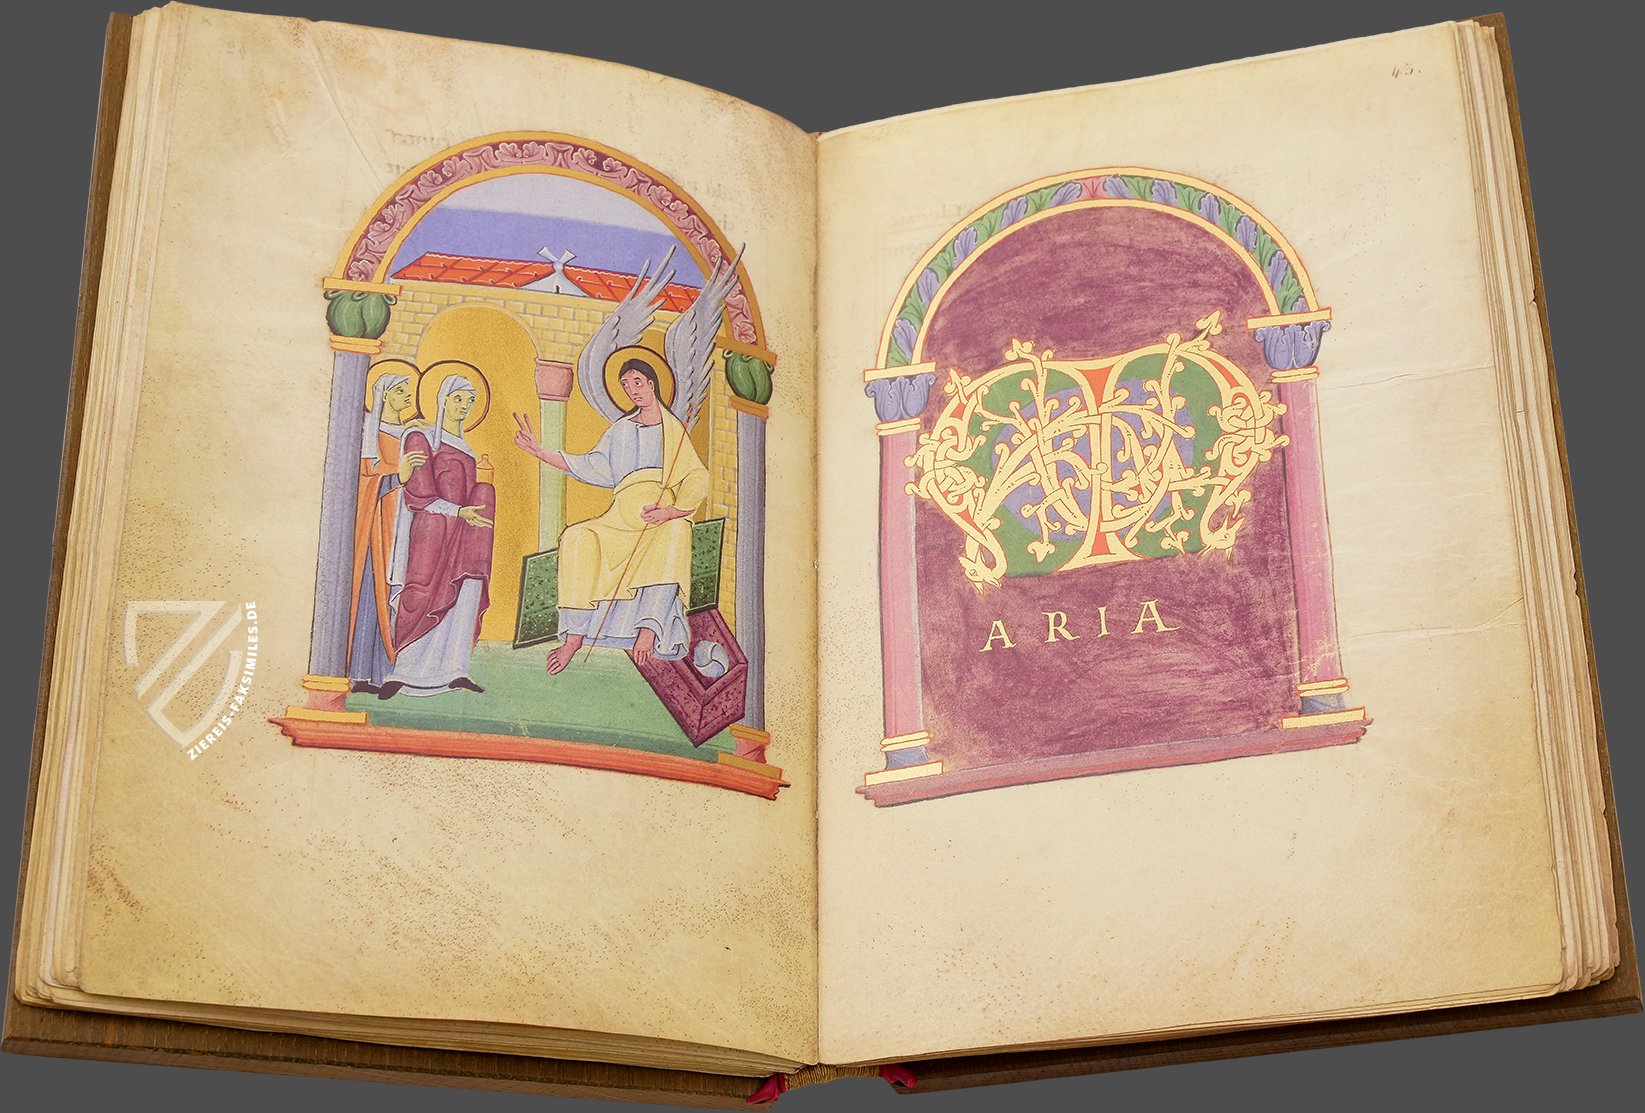 ZIEREIS-FAKSIMILES.DE
43.
M
ARIA